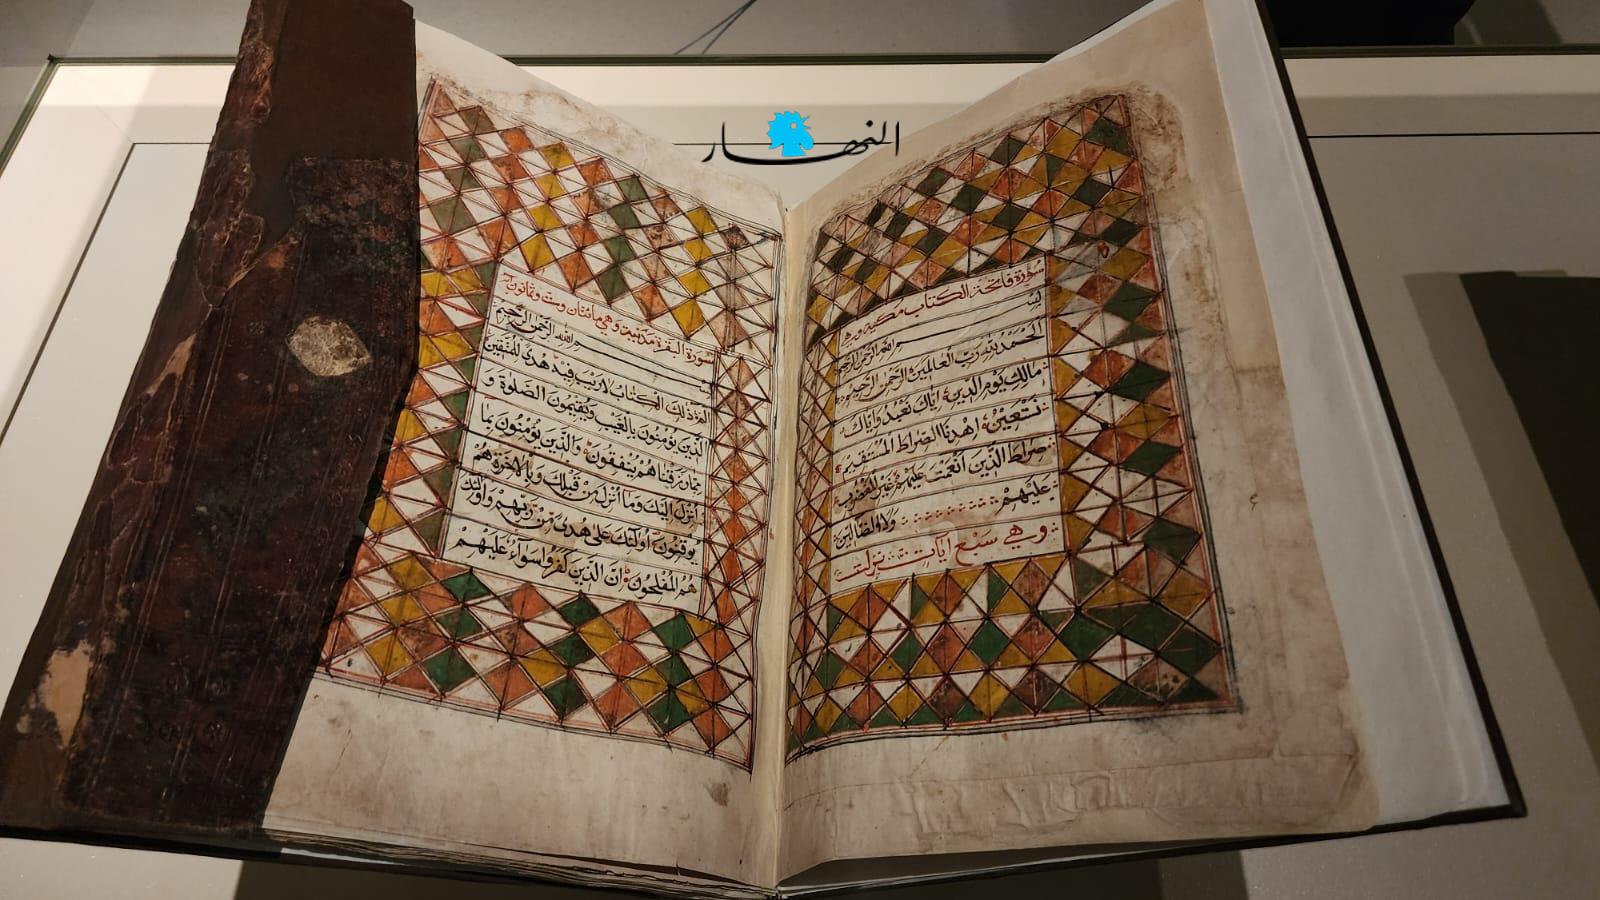 النهار
سورة فاتحة الكتاب مكية وهي
بسم الله الرحمن الرحيم
الحمد لله رب العالمين الرحمن الرحيم
مالك يوم الدين اياك نعبد واياك
نستعين اهدنا الصراط المستقيم
صراط الذين انعمت عليهم غير المغضوب
عليهم ولا الضالين
وهي سبع ايات نزلت
سورة البقرة مدنية وهي مائتان وست وثمانون
بسم الله الرحمن الرحيم
الم ذلك الكتاب لا ريب فيه هدى للمتقين
الذين يؤمنون بالغيب ويقيمون الصلوة و
مما رزقناهم ينفقون والذين يؤمنون بما
انزل اليك وما انزل من قبلك وبالاخرة هم
يوقنون اولئك على هدى من ربهم واولئك
هم المفلحون ان الذين كفروا سواء عليهم